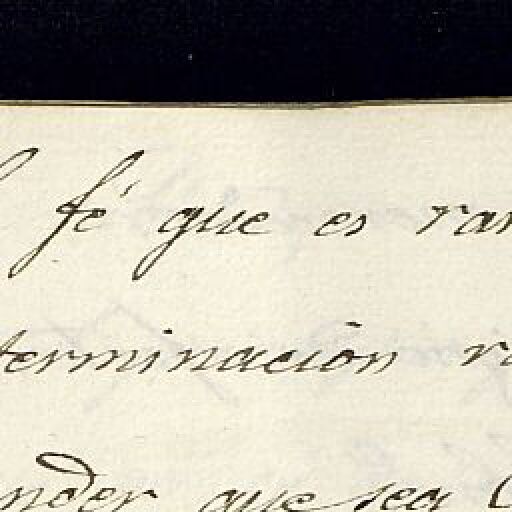 fé que es
terminación
nder que sea